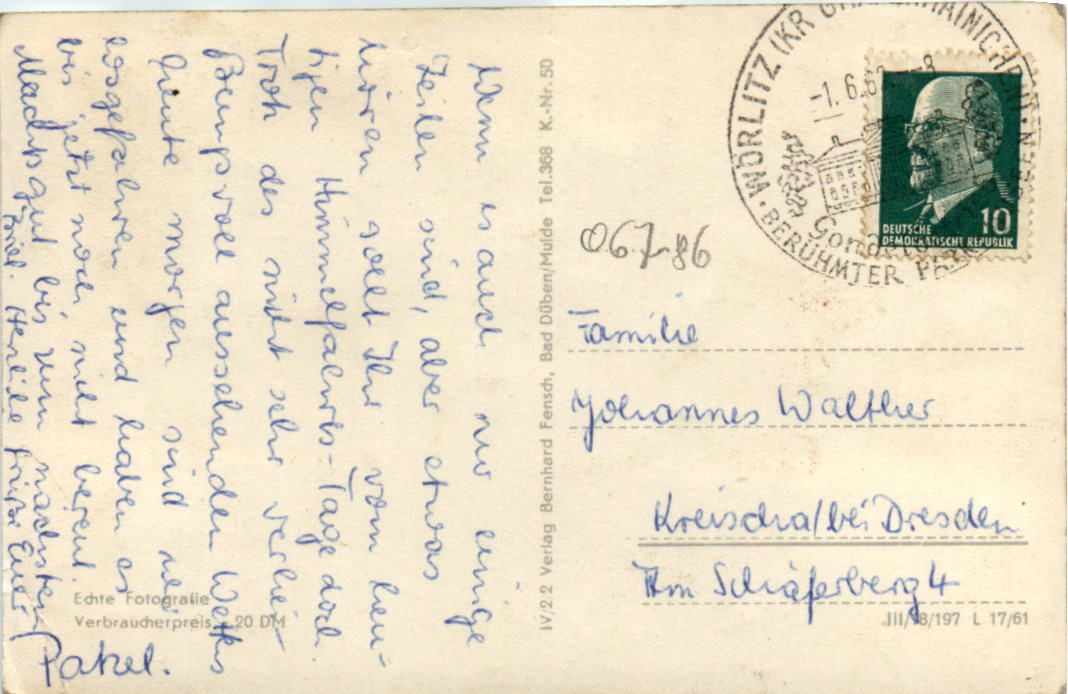 Wenn es auch nur einige
Zeilen sind, aber etwas
hören sollt Ihr vom heu-
tigen Himmelfahrts-Tage doch.
Trotz des nicht sehr verhei-
ßungsvoll aussehenden Wetters
heute morgen sind wir
losgefahren und haben es
bis jetzt noch nicht bereut.
Macht's gut bis zum nächsten
Brief. Herzliche Grüße Euer
WÖRLITZ (KR
-1.6.6
BERÜHMTER
10
DEUTSCHE
DEMOKRATISCHE REPUBLIK
06.7-86
Familie
Johannes Walther
Kreischa/bei Dresden
Am Schäferberg 4
IV/2.2 Verlag Bernhard Fensch, Bad Düben/Mulde Tel.368 K.-Nr. 50
Echte Fotografie
Verbraucherpreis -.20 DM
III/18/197 L 17/61